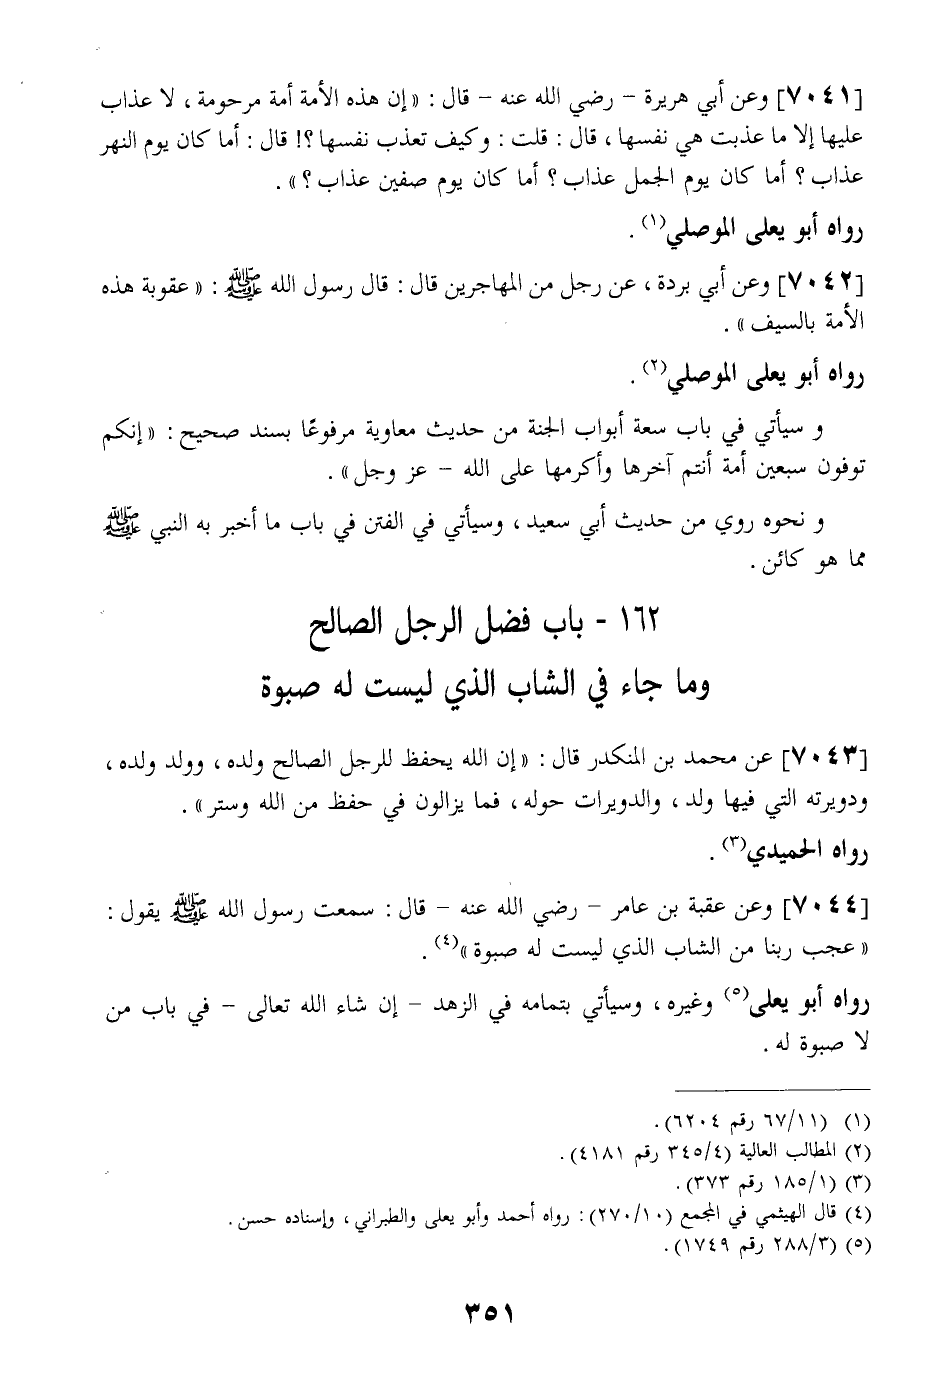 [٧٠٤١] وعن أبي هريرة - رضي الله عنه - قال : «إن هذه الأمة أمة مرحومة ، لا عذاب
عليها إلا ما عذبت هي نفسها ، قال : قلت : وكيف تعذب نفسها ؟! قال : أما كان يوم النهر
عذاب ؟ أما كان يوم الجمل عذاب ؟ أما كان يوم صفين عذاب ؟» .
رواه أبو يعلى الموصلي(١) .
[٧٠٤٢] وعن أبي بردة ، عن رجل من المهاجرين قال : قال رسول الله ﷺ : «عقوبة هذه
الأمة بالسيف» .
رواه أبو يعلى الموصلي(٢) .
و سيأتي في باب سعة أبواب الجنة من حديث معاوية مرفوعًا بسند صحيح : «إنكم
توفون سبعين أمة أنتم آخرها وأكرمها على الله - عز وجل» .
و نحوه روي من حديث أبي سعيد ، وسيأتي في الفتن في باب ما أخبر به النبي ﷺ
مما هو كائن .
١٦٢ - باب فضل الرجل الصالح
وما جاء في الشاب الذي ليست له صبوة
[٧٠٤٣] عن محمد بن المنكدر قال : «إن الله يحفظ للرجل الصالح ولده ، وولد ولده ،
ودويرته التي فيها ولد ، والدويرات حوله ، فما يزالون في حفظ من الله وستر» .
رواه الحميدي(٣) .
[٧٠٤٤] وعن عقبة بن عامر - رضي الله عنه - قال : سمعت رسول الله ﷺ يقول :
«عجب ربنا من الشاب الذي ليست له صبوة»(٤) .
رواه أبو يعلى(٥) وغيره ، وسيأتي بتمامه في الزهد - إن شاء الله تعالى - في باب من
لا صبوة له .
(١) (٦٧/١١ رقم ٦٢٠٤) .
(٢) المطالب العالية (٣٤٥/٤ رقم ٤١٨١) .
(٣) (١٨٥/١ رقم ٣٧٣) .
(٤) قال الهيثمي في المجمع (٢٧٠/١٠) : رواه أحمد وأبو يعلى والطبراني ، وإسناده حسن .
(٥) (٢٨٨/٣ رقم ١٧٤٩) .
٣٥١